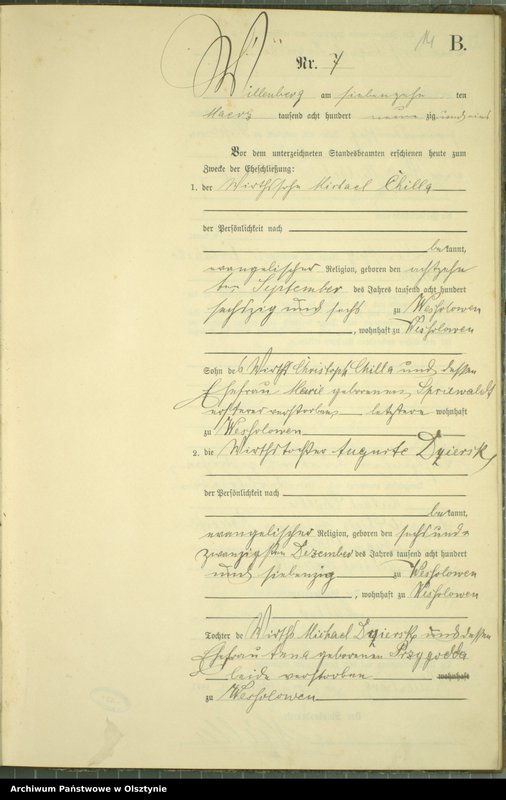 14 B.
Nr. 7
Willenberg am siebenzehn ten
Maerz tausend acht hundert neunzig und eins
Vor dem unterzeichneten Standesbeamten erschienen heute zum
Zwecke der Eheschließung:
1. der Wirthssohn Michael Chilla
der Persönlichkeit nach
bekannt,
evangelischer Religion, geboren den achtzehn
ten September des Jahres tausend acht hundert
sechszig und sechs zu Wessolowen
, wohnhaft zu Wessolowen
Sohn des Wirths Christoph Chilla und dessen
Ehefrau Marie geborenen Spriewaldt
ersterer verstorben letztere wohnhaft
zu Wessolowen
2. die Wirthstochter Auguste Dziersk
der Persönlichkeit nach
bekannt,
evangelischer Religion, geboren den sechsund-
zwanzigsten Dezember des Jahres tausend acht hundert
und siebenzig zu Wessolowen
, wohnhaft zu Wessolowen
Tochter des Wirths Michael Dziersk und dessen
Ehefrau Anna geborenen Przygodda
beide verstorben wohnhaft
zu Wessolowen
Archiwum Państwowe w Olsztynie